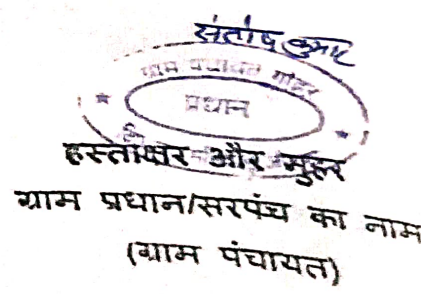 संतोष कुमार
ग्राम पंचायत
प्रधान
हस्ताक्षर और मुहर
ग्राम प्रधान/सरपंच का नाम
(ग्राम पंचायत)